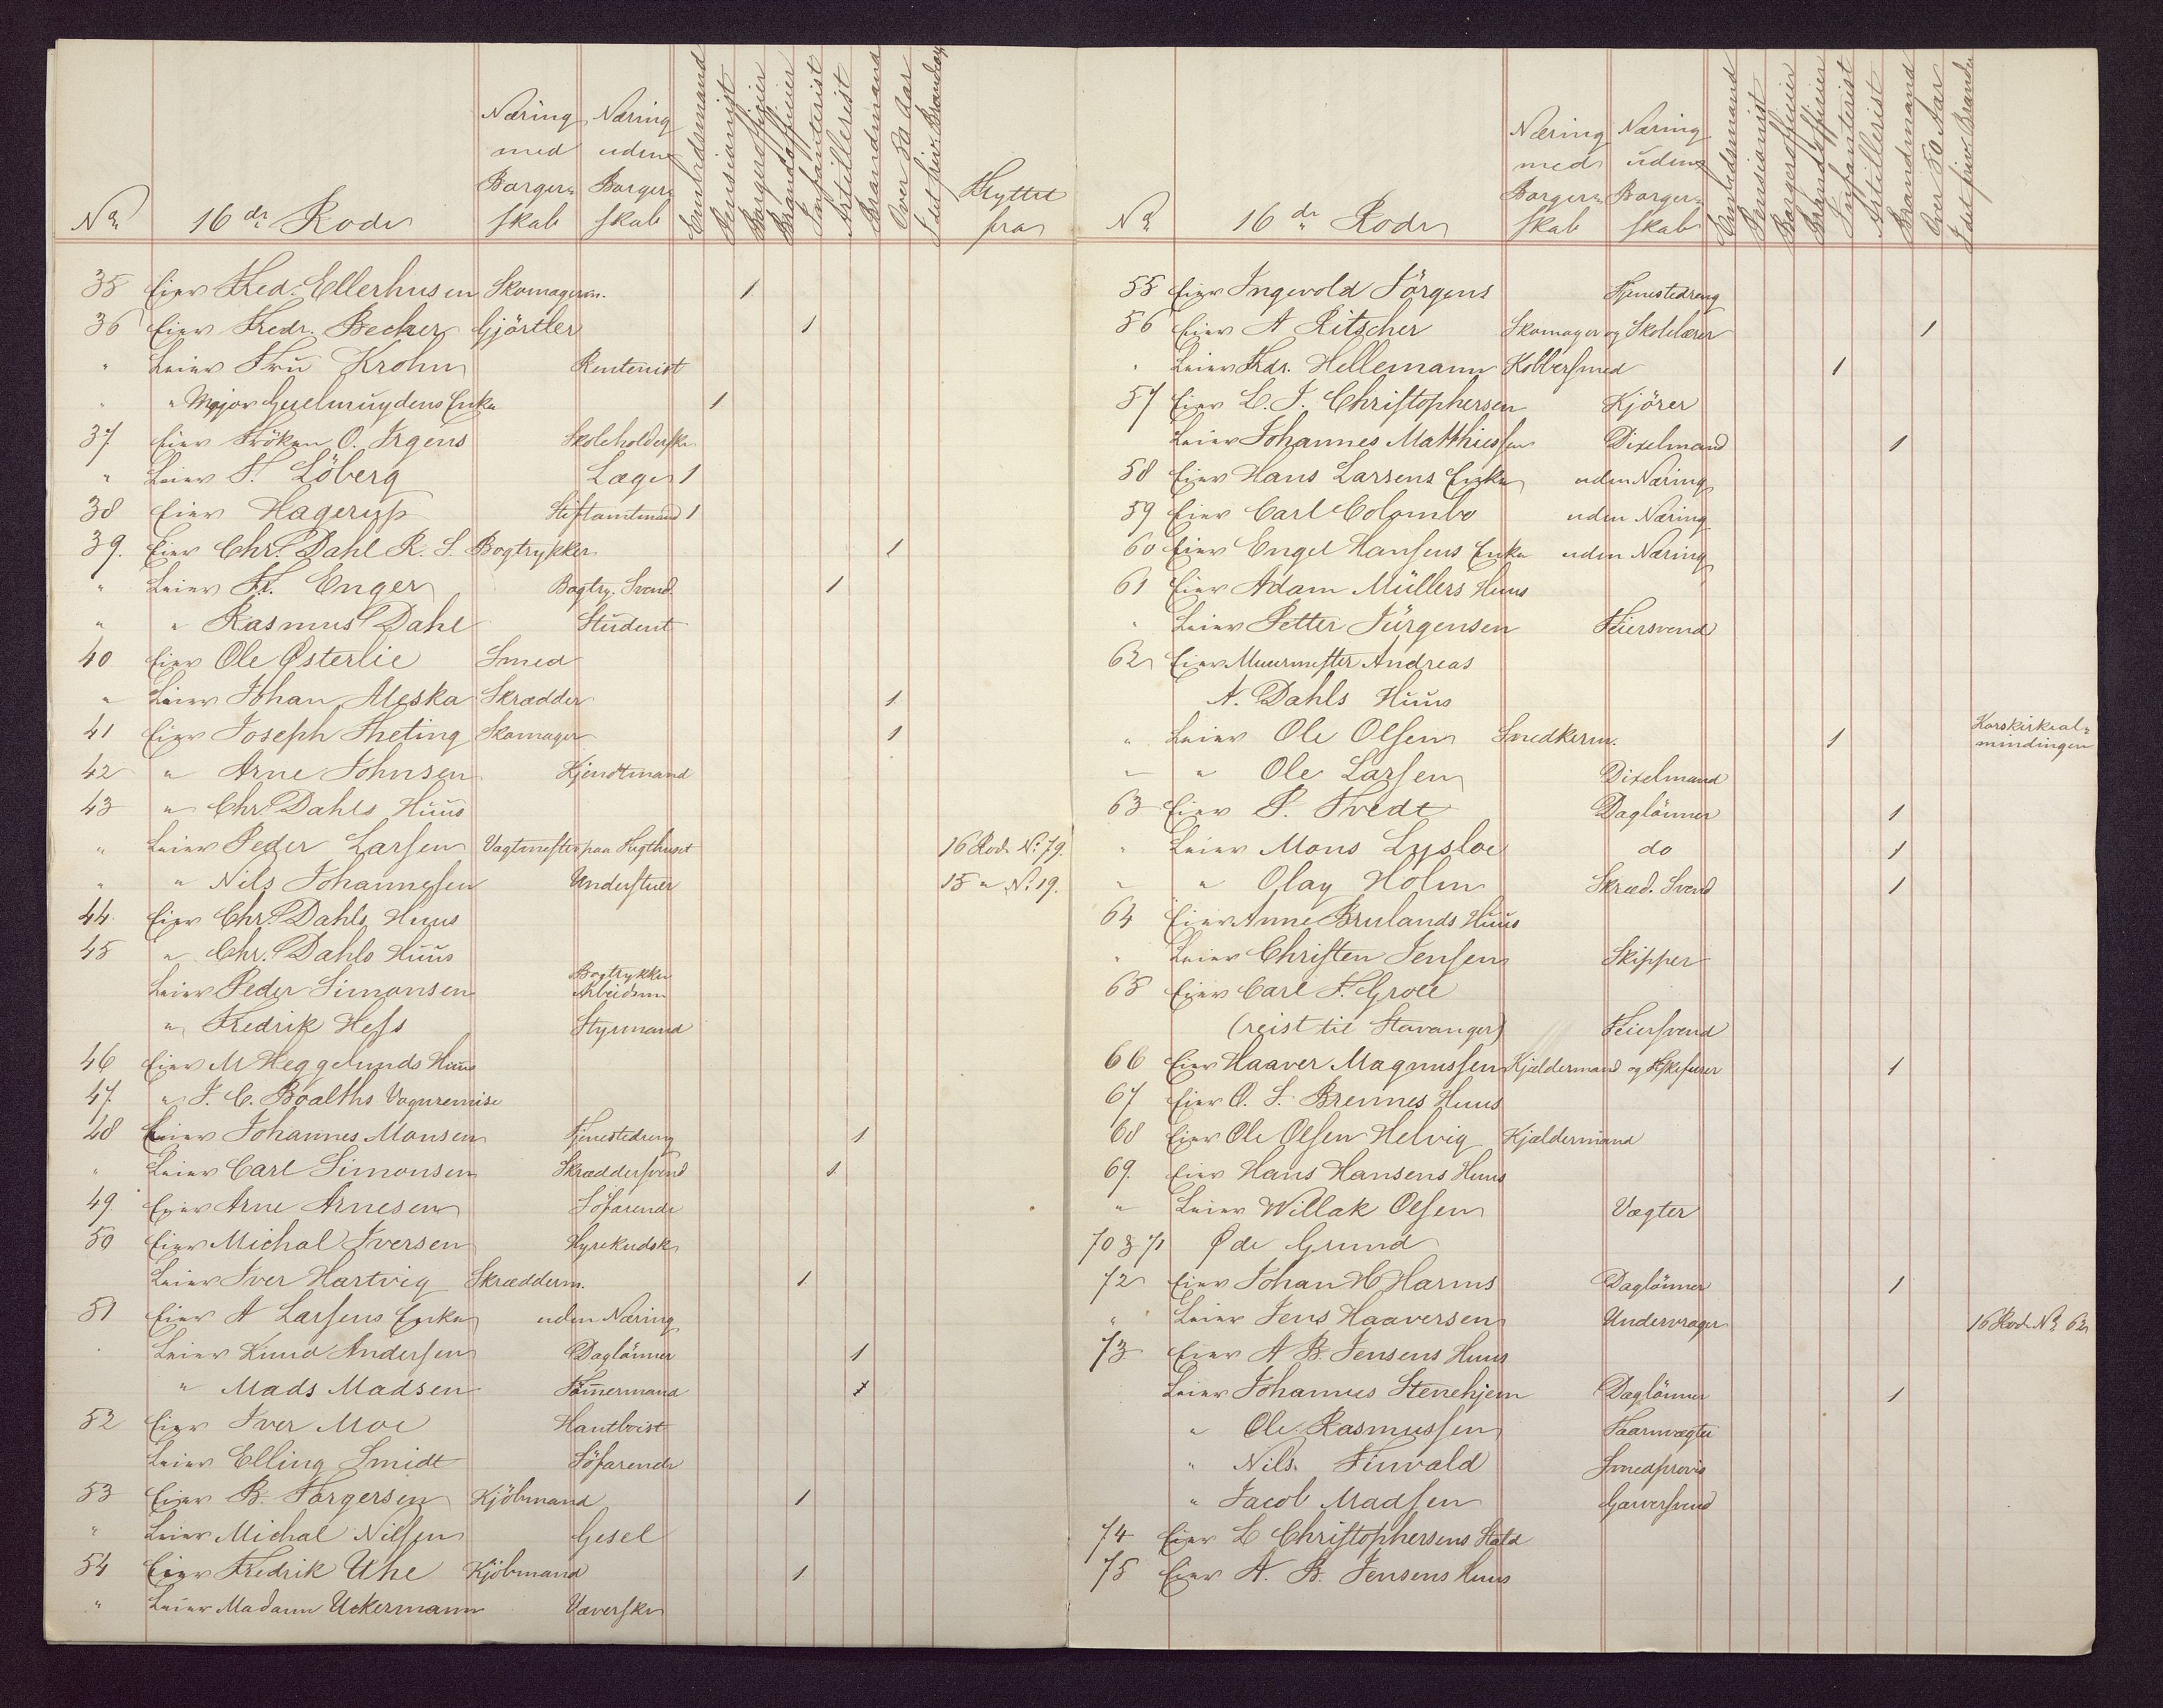 No 16de Rode Næring med Borgerskab Næring uden Borgerskab Embedsmand Pensionist Borgerofficier Brandofficier Infanterist Artillerist Brandmand Over 50 Aar Flyttet fra
35 Eier Fred. Ellerhusen Skomagerm. 1
36 Eier Fredr. Becker Gjörtler 1
" Leier Fru Krohn Rentenist
" " Major Guelmuydens Enke 1
37. Eier Fröken O. Irgens Skoleholderske
" Leier F. Löberg Læge 1
38 Eier Hagerup Stiftamtmand 1
39. Eier Chr. Dahl R. S. Bogtrykker 1
" Leier Fr. Enger Bogtry. Svend. 1
" " Rasmus Dahl Student
40 Eier Ole Østerlie Smed
" Leier Johan Meska Skrædder 1
41 Eier Joseph Theting Skomager 1
42 " Arne Johnsen Kjendtmand
43 " Chr. Dahls Huus
" Leier Peder Larsen Vagtmester paa Tugthuset 16 Rode No 79.
" " Nils Johannesen 15 " No 19.
44. Eier Chr. Dahls Huus
45 " Chr. Dahls Huus
Leier Peder Simonsen Bogtrykker Arbeidsm
" Fredrik Hess Styrmand
46 Eier M Heggelunds Huus
47. " J. C. Boalths Vognremise
48 Eier Johannes Monsen Tjenestedreng 1
" Leier Carl Simonsen Skræddersvend 1
49. Eier Arne Arnesen Söfarende
50 Eier Michal Iversen Hyrekudsk
Leier Iver Hartvig Skrædderm. 1
51 Eier A Larsens Enke uden Næring
Leier Knud Andersen Daglönner 1
" Mads Madsen Tömmermand 1
52 Eier Iver Moe Hautboist
Leier Elling Smidt Söfarende
53 Eier B. Torgersen Kjöbmand 1
" Leier Michal Nilsen Gesel
54 Eier Fredrik Uhe Kjöbmand 1
" Leier Madam Uckermann Væverske
No 16de Rode Næring med Borgerskab Næring uden Borgerskab Embedsmand Pensionist Borgerofficier Brandofficier Infanterist Artillerist Brandmand Over 50 Aar
55 Eier Ingevold Jörgens Tjenestedreng
56 Eier A Ritscher Skomager og Skolelærer 1
" Leier Fredr. Hellemann Kobbersmed 1
57 Eier L. J. Christophersen Kjörer
Leier Johannes Matthiessen Dixelmand 1
58 Eier Hans Larsens Enke uden Næring
59 Eier Carl Colombo uden Næring
60 Eier Engel Hansens Enke uden Næring
61 Eier Adam Müllers Huus
" Leier Petter Jürgensen Feiersvend
62 Eier Muurmester Andreas
N. Dahls Huus
" Leier Ole Olsen Smedkerm. 1 Korskirkealmindingen
" " Ole Larsen Dixelmand
63 Eier P. Tvedt Daglönner 1
" Leier Mons Lysloe do 1
" " Olay Holm Skræd. Svend 1
64 Eier Anne Brulands Huus
" Leier Christen Jensen Skipper
65 Eier Carl F. Groll
(reist til Stavanger) Feiersvend
66 Eier Haaver Magnussen Kjældermand og 1
67 Eier O. S. Brennes Huus
68 Eier Ole Olsen Helvig Kjældermand
69. Eier Hans Hansens Huus
" Leier Willak Olsen Vægter
70 & 71 Øde Grund
72 Eier Johan H Harms Daglönner 1
" Leier Jens Haaversen 16 Rode No 62
73 Eier A B. Jensens Huus
Leier Johannes Stenehjem Daglönner 1
" Ole Rasmussen Taarnvægter
" Nils Finvald
" Jacob Madsen Garversvend
74 Eier L Christophersens Stald
75 Eier A. B. Jensens Huus